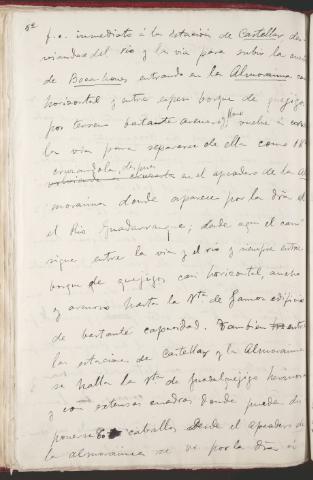 52
f. c. inmediato á la estacion de Castellar des-
viandose del rio y la via para subir la
de Boca-leones entrando en la Almoraima casi
horizontal y entre espeso bosque de quejigos
por terreno bastante arenoso y llano vuelve á
la via para separarse de ella como 1
cruzandola, despues
en el apeadero de la Al
moraima donde aparece por la dra
el Rio Guadarranque; desde aqui el cam
sigue entre la via y el rio y siempre entre
bosque de quejigos casi horizontal, ancho
y arenoso hasta la Vta de Gamez edificio
de bastante capacidad. Tambien entre
las estaciones de Castellar y la Almoraima
se halla la Vta de Guadalquejigo hermosa
y con extensas cuadras donde pueden dis
ponerse caballos Desde el Apeadero de
la Almoraima se ve por la dra á